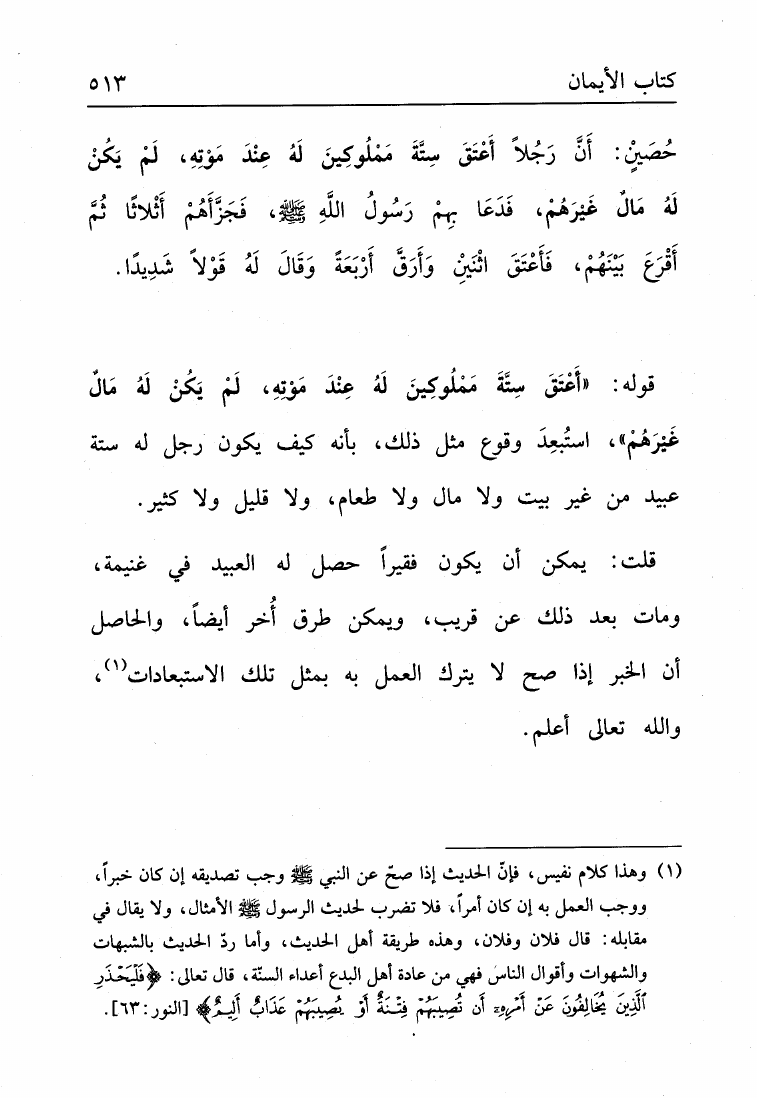 كتاب الأيمان ٥١٣
حُصَيْنٍ: أَنَّ رَجُلاً أَعْتَقَ سِتَّةَ مَمْلُوكِينَ لَهُ عِنْدَ مَوْتِهِ، لَمْ يَكُنْ
لَهُ مَالٌ غَيْرَهُمْ، فَدَعَا بِهِمْ رَسُولُ اللَّهِ ﷺ، فَجَزَّأَهُمْ أَثْلَاثًا ثُمَّ
أَقْرَعَ بَيْنَهُمْ، فَأَعْتَقَ اثْنَيْنِ وَأَرَقَّ أَرْبَعَةً وَقَالَ لَهُ قَوْلاً شَدِيدًا.
قوله: «أَعْتَقَ سِتَّةَ مَمْلُوكِينَ لَهُ عِنْدَ مَوْتِهِ، لَمْ يَكُنْ لَهُ مَالٌ
غَيْرَهُمْ»، استُبعِدَ وقوع مثل ذلك، بأنه كيف يكون رجل له ستة
عبيد من غير بيت ولا مال ولا طعام، ولا قليل ولا كثير.
قلت: يمكن أن يكون فقيراً حصل له العبيد في غنيمة،
ومات بعد ذلك عن قريب، ويمكن طرق أُخر أيضاً، والحاصل
أن الخبر إذا صح لا يترك العمل به بمثل تلك الاستبعادات(١)،
والله تعالى أعلم.
(١) وهذا كلام نفيس، فإنّ الحديث إذا صحّ عن النبي ﷺ وجب تصديقه إن كان خبراً،
ووجب العمل به إن كان أمراً، فلا تضرب لحديث الرسول ﷺ الأمثال، ولا يقال في
مقابله: قال فلان وفلان، وهذه طريقة أهل الحديث، وأما ردّ الحديث بالشبهات
والشهوات وأقوال الناس فهي من عادة أهل البدع أعداء السنّة، قال تعالى: ﴿فَلْيَحْذَرِ
ٱلَّذِينَ يُخَالِفُونَ عَنْ أَمْرِهِۦٓ أَن تُصِيبَهُمْ فِتْنَةٌ أَوْ يُصِيبَهُمْ عَذَابٌ أَلِيمٌ﴾ [النور: ٦٣].